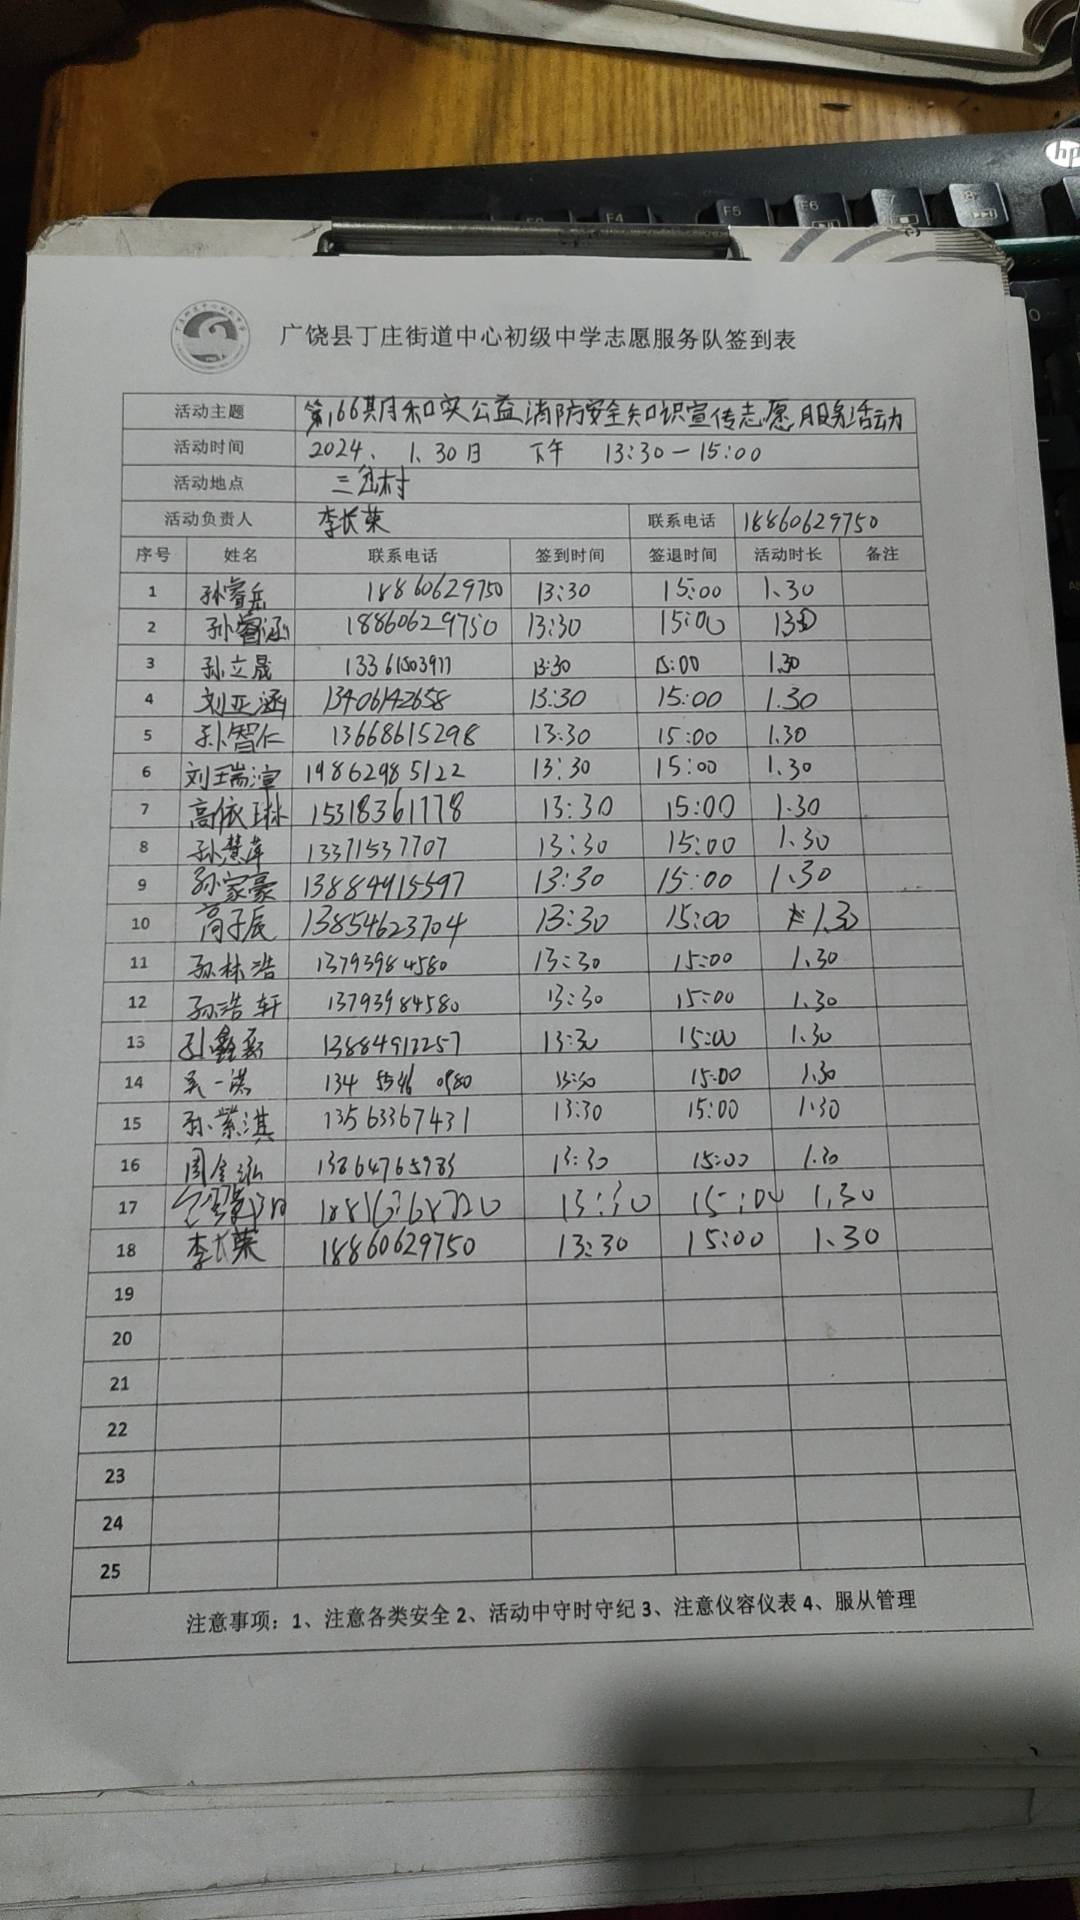 hp
F4 F5 F6 F7 F8
广饶县丁庄街道中心初级中学志愿服务队签到表
活动主题 第166期月和实公益消防安全知识宣传志愿服务活动
活动时间 2024、1.30日 下午 13:30—15:00
活动地点 三岔村
活动负责人 李长荣 联系电话 18860629750
序号 姓名 联系电话 签到时间 签退时间 活动时长 备注
1 孙睿岳 18860629750 13:30 15:00 1.30
2 孙睿涵 18860629750 13:30 15:00 130
3 孙立晟 13:30 15:00 1.30
4 刘亚涵 13406142658 13:30 15:00 1.30
5 孙智仁 13668615298 13:30 15:00 1.30
6 刘瑞渲 19862985122 13:30 15:00 1.30
7 高依琳 15318361778 13:30 15:00 1.30
8 孙慧萍 13371537707 13:30 15:00 1.30
9 孙家豪 13884915597 13:30 15:00 1.30
10 高子辰 13854623704 13:30 15:00 1.30
11 孙林浩 13793984580 13:30 15:00 1.30
12 孙浩轩 13793984580 13:30 15:00 1.30
13 13:30 15:00 1.30
14 一 13:30 15:00 1.30
15 孙紫淇 13563367431 13:30 15:00 1.30
16 周金泓 13864765983 13:30 15:00 1.30
17 13:30 15:00 1.30
18 李长荣 18860629750 13:30 15:00 1.30
19
20
21
22
23
24
25
注意事项：1、注意各类安全 2、活动中守时守纪 3、注意仪容仪表 4、服从管理